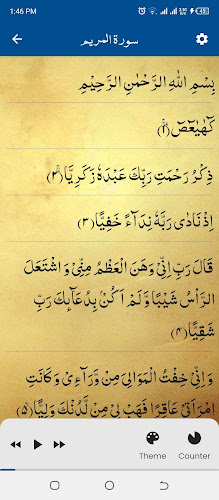 1:46 PM
سورة المريم
بِسْمِ اللهِ الرَّحْمٰنِ الرَّحِيْمِ
كٓهٰيٰعٓصٓ ﴿۱﴾
ذِكْرُ رَحْمَتِ رَبِّكَ عَبْدَهٗ زَكَرِيَّا ﴿۲﴾
اِذْ نَادٰى رَبَّهٗ نِدَآءً خَفِيًّا ﴿۳﴾
قَالَ رَبِّ اِنِّىْ وَهَنَ الْعَظْمُ مِنِّىْ وَ اشْتَعَلَ
الرَّاْسُ شَيْبًا وَّ لَمْ اَكُنْۢ بِدُعَآئِكَ رَبِّ
شَقِيًّا ﴿۴﴾
وَ اِنِّىْ خِفْتُ الْمَوَالِىَ مِنْ وَّرَآءِىْ وَ كَانَتِ
امْرَاَتِىْ عَاقِرًا فَهَبْ لِىْ مِنْ لَّدُنْكَ وَلِيًّا ﴿۵﴾
Theme
Counter